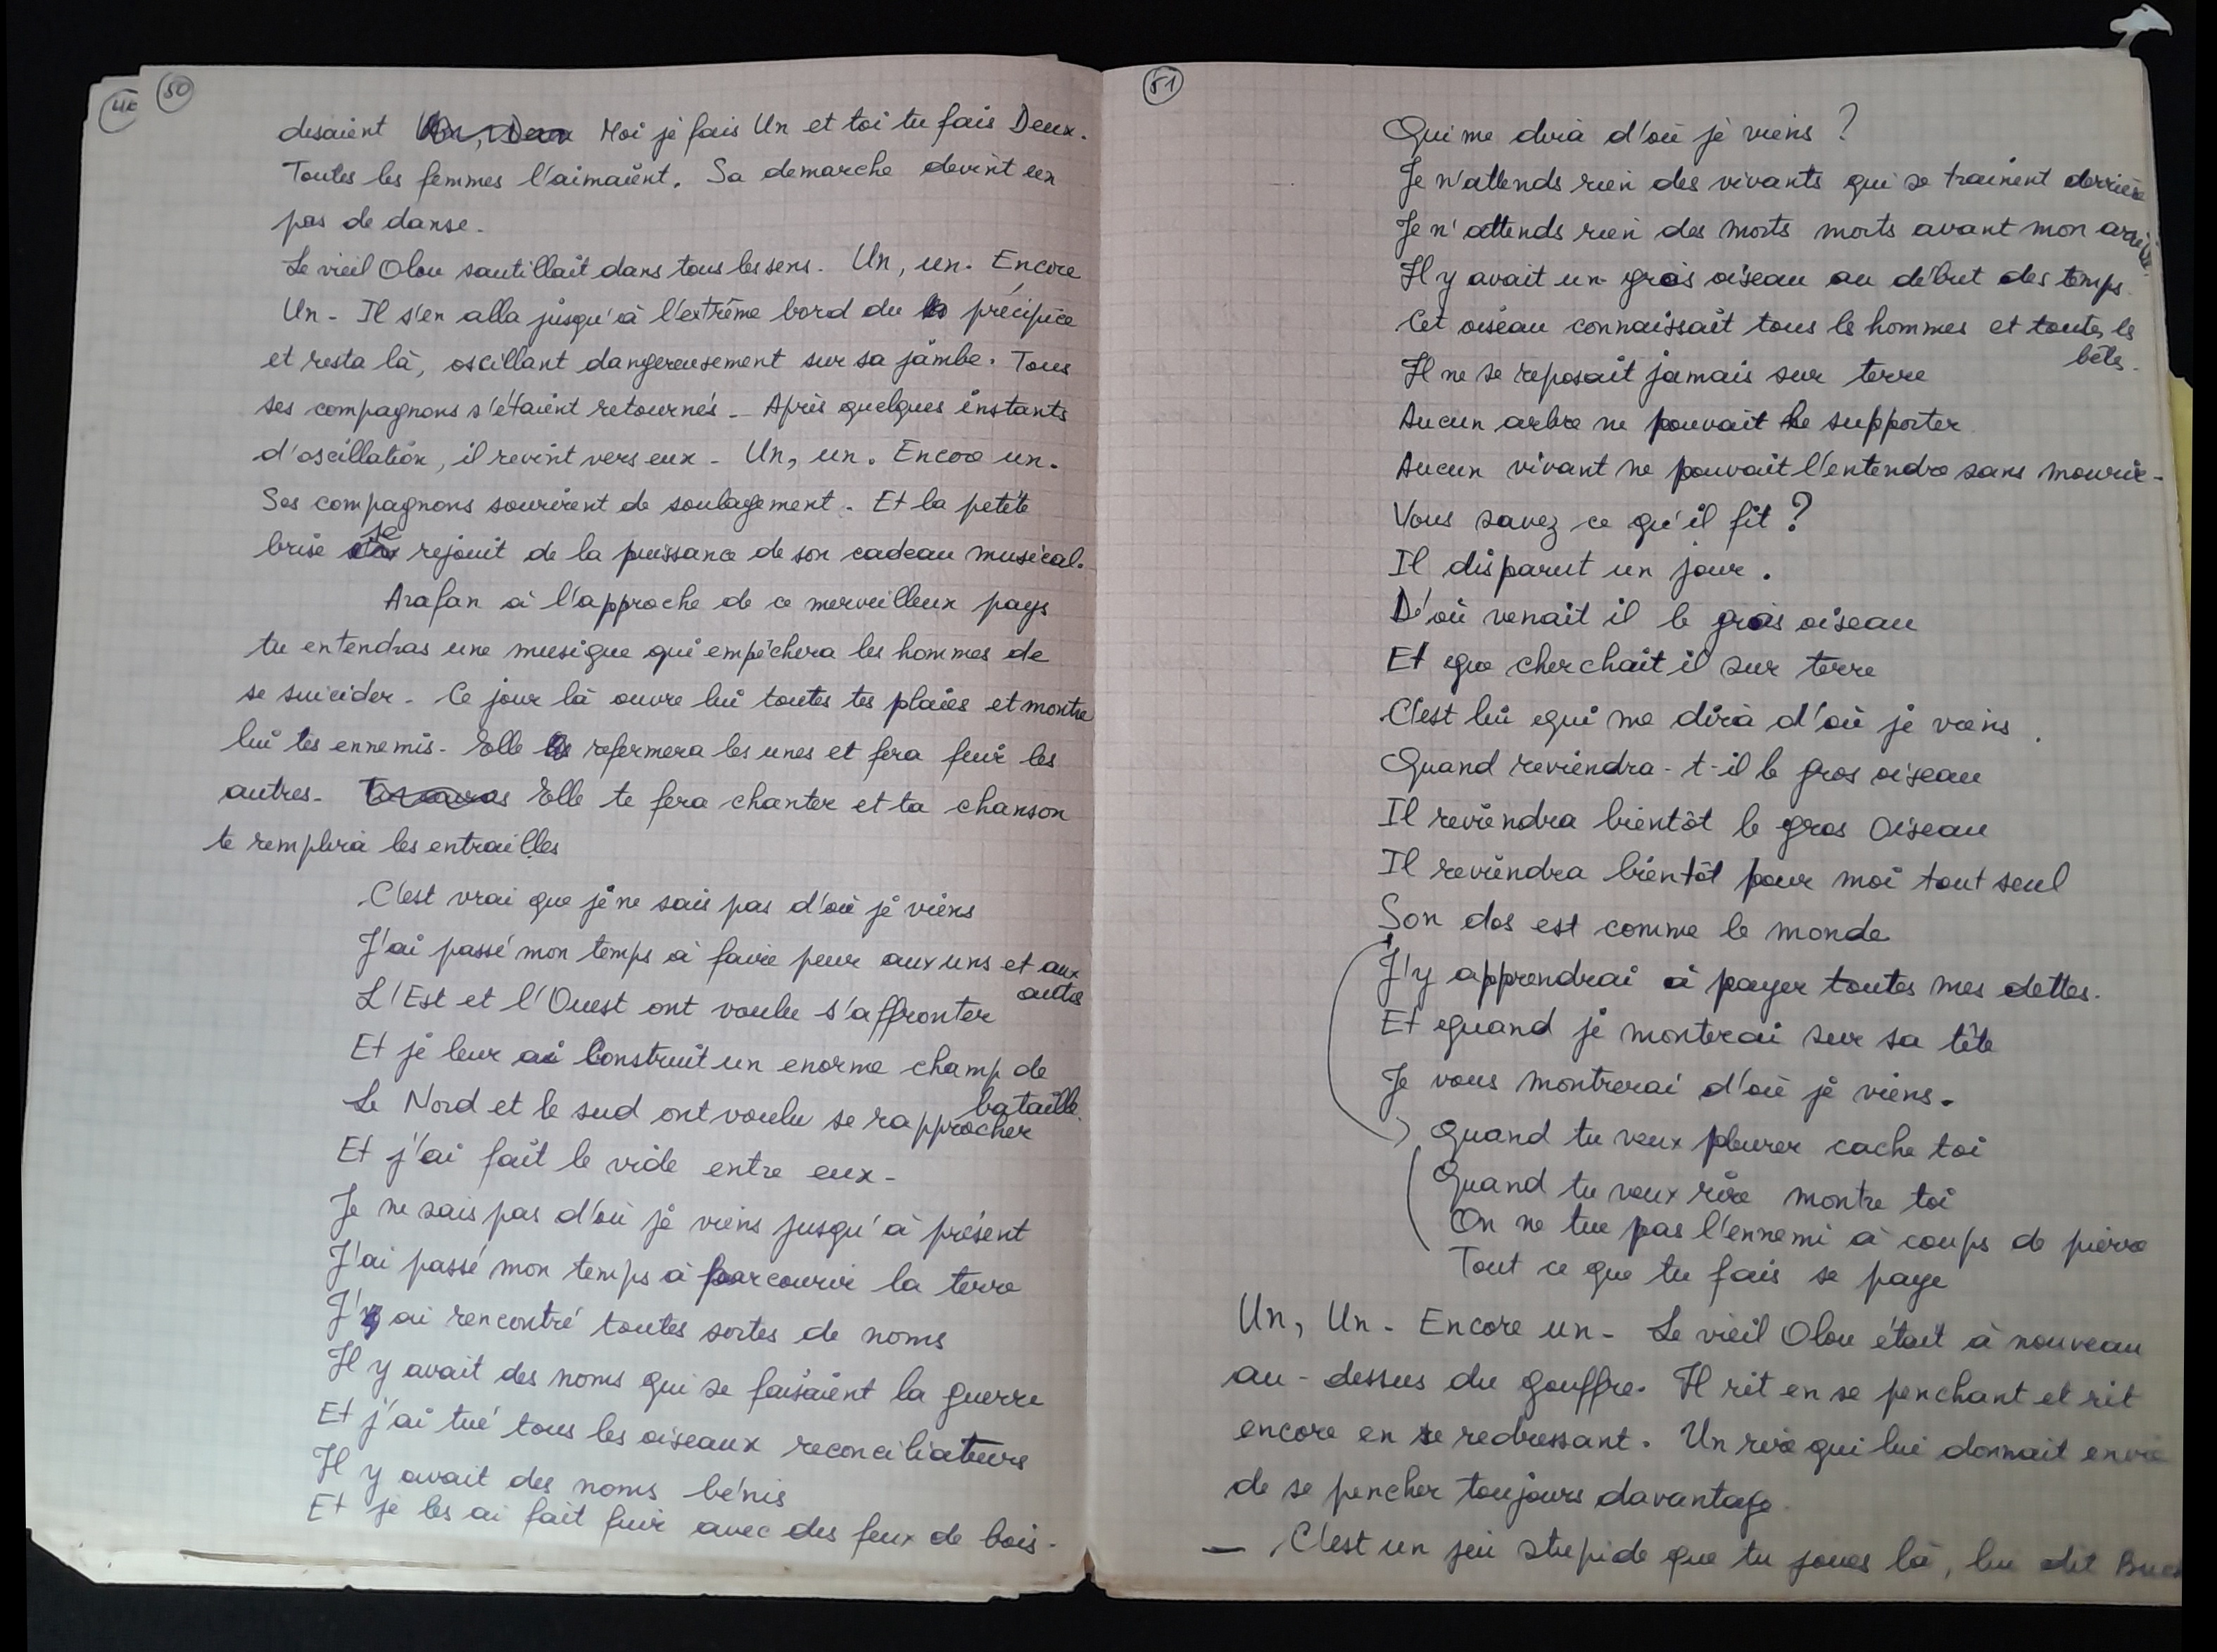 50
disaient Moi je fais Un et toi tu fais Deux.
Toutes les femmes l'aimaient. Sa demarche devint un
pas de danse.
Le vieil Olou sautillait dans tous les sens. Un, un. Encore
Un - Il s'en alla jusqu'à l'extrême bord du précipice
et resta là, oscillant dangereusement sur sa jambe. Tous
ses compagnons s'étaient retournés - Après quelques instants
d'oscillation, il revint vers eux - Un, un. Encore un.
Ses compagnons sourirent de soulagement. Et la petite
brise se rejouit de la puissance de son cadeau musical.
Arafan à l'approche de ce merveilleux pays
tu entendras une musique qui empêchera les hommes de
se suicider - Ce jour là ouvre lui toutes tes plaies et montre
lui tes ennemis - Elle refermera les unes et fera fuir les
autres - Elle te fera chanter et ta chanson
te remplira les entrailles
C'est vrai que je ne sais pas d'où je viens
J'ai passé mon temps à faire peur aux uns et aux
autres
L'Est et l'Ouest ont voulu s'affronter
Et je leur ai construit un enorme champ de
bataille.
Le Nord et le sud ont voulu se rapprocher
Et j'ai fait le vide entre eux -
Je ne sais pas d'où je viens jusqu'à présent
J'ai passé mon temps à parcourir la terre
J'y ai rencontré toutes sortes de noms
Il y avait des noms qui se faisaient la guerre
Et j'ai tué tous les oiseaux reconciliateurs
Il y avait des noms bénis
Et je les ai fait fuir avec des feux de bois -
51
Qui me dira d'où je viens ?
Je n'attends rien des vivants qui se trainent derrière
Je n'attends rien des morts morts avant mon
Il y avait un gros oiseau au début des temps
Cet oiseau connaissait tous les hommes et toutes les
bêtes.
Il ne se reposait jamais sur terre
Aucun arbre ne pouvait le supporter
Aucun vivant ne pouvait l'entendre sans mourir -
Vous savez ce qu'il fit ?
Il disparut un jour.
D'où venait il le gros oiseau
Et que cherchait il sur terre
C'est lui qui me dira d'où je viens.
Quand reviendra-t-il le gros oiseau
Il reviendra bientôt le gros Oiseau
Il reviendra bientôt pour moi tout seul
Son dos est comme le monde
J'y apprendrai à payer toutes mes dettes.
Et quand je monterai sur sa tête
Je vous montrerai d'où je viens.
Quand tu veux pleurer cache toi
Quand tu veux rire montre toi
On ne tue pas l'ennemi à coups de pierre
Tout ce que tu fais se paye
Un, Un - Encore un - Le vieil Olou était à nouveau
au-dessus du gouffre. Il rit en se penchant et rit
encore en se redressant. Un rire qui lui donnait envie
de se pencher toujours davantage.
— C'est un jeu stupide que tu joues là, lui dit